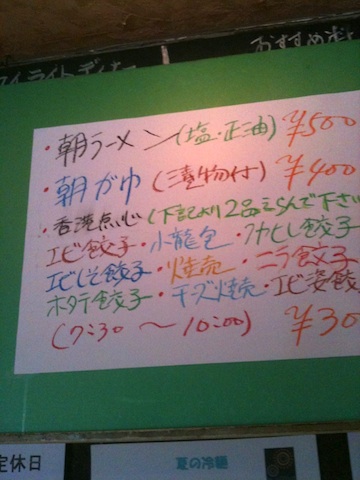 おすすめ
イライトディナー
・朝ラーメン(塩・正油) ¥500
・朝がゆ (漬物付) ¥400
・香港点心(下記より2品えらんで下さい
エビ餃子・小龍包・フカヒレ餃子
エビしそ餃子・焼売・ニラ餃子
ホタテ餃子・チーズ焼売・エビ姿餃
(7:30 〜 10:00) ¥30
定休日
夏の冷麺